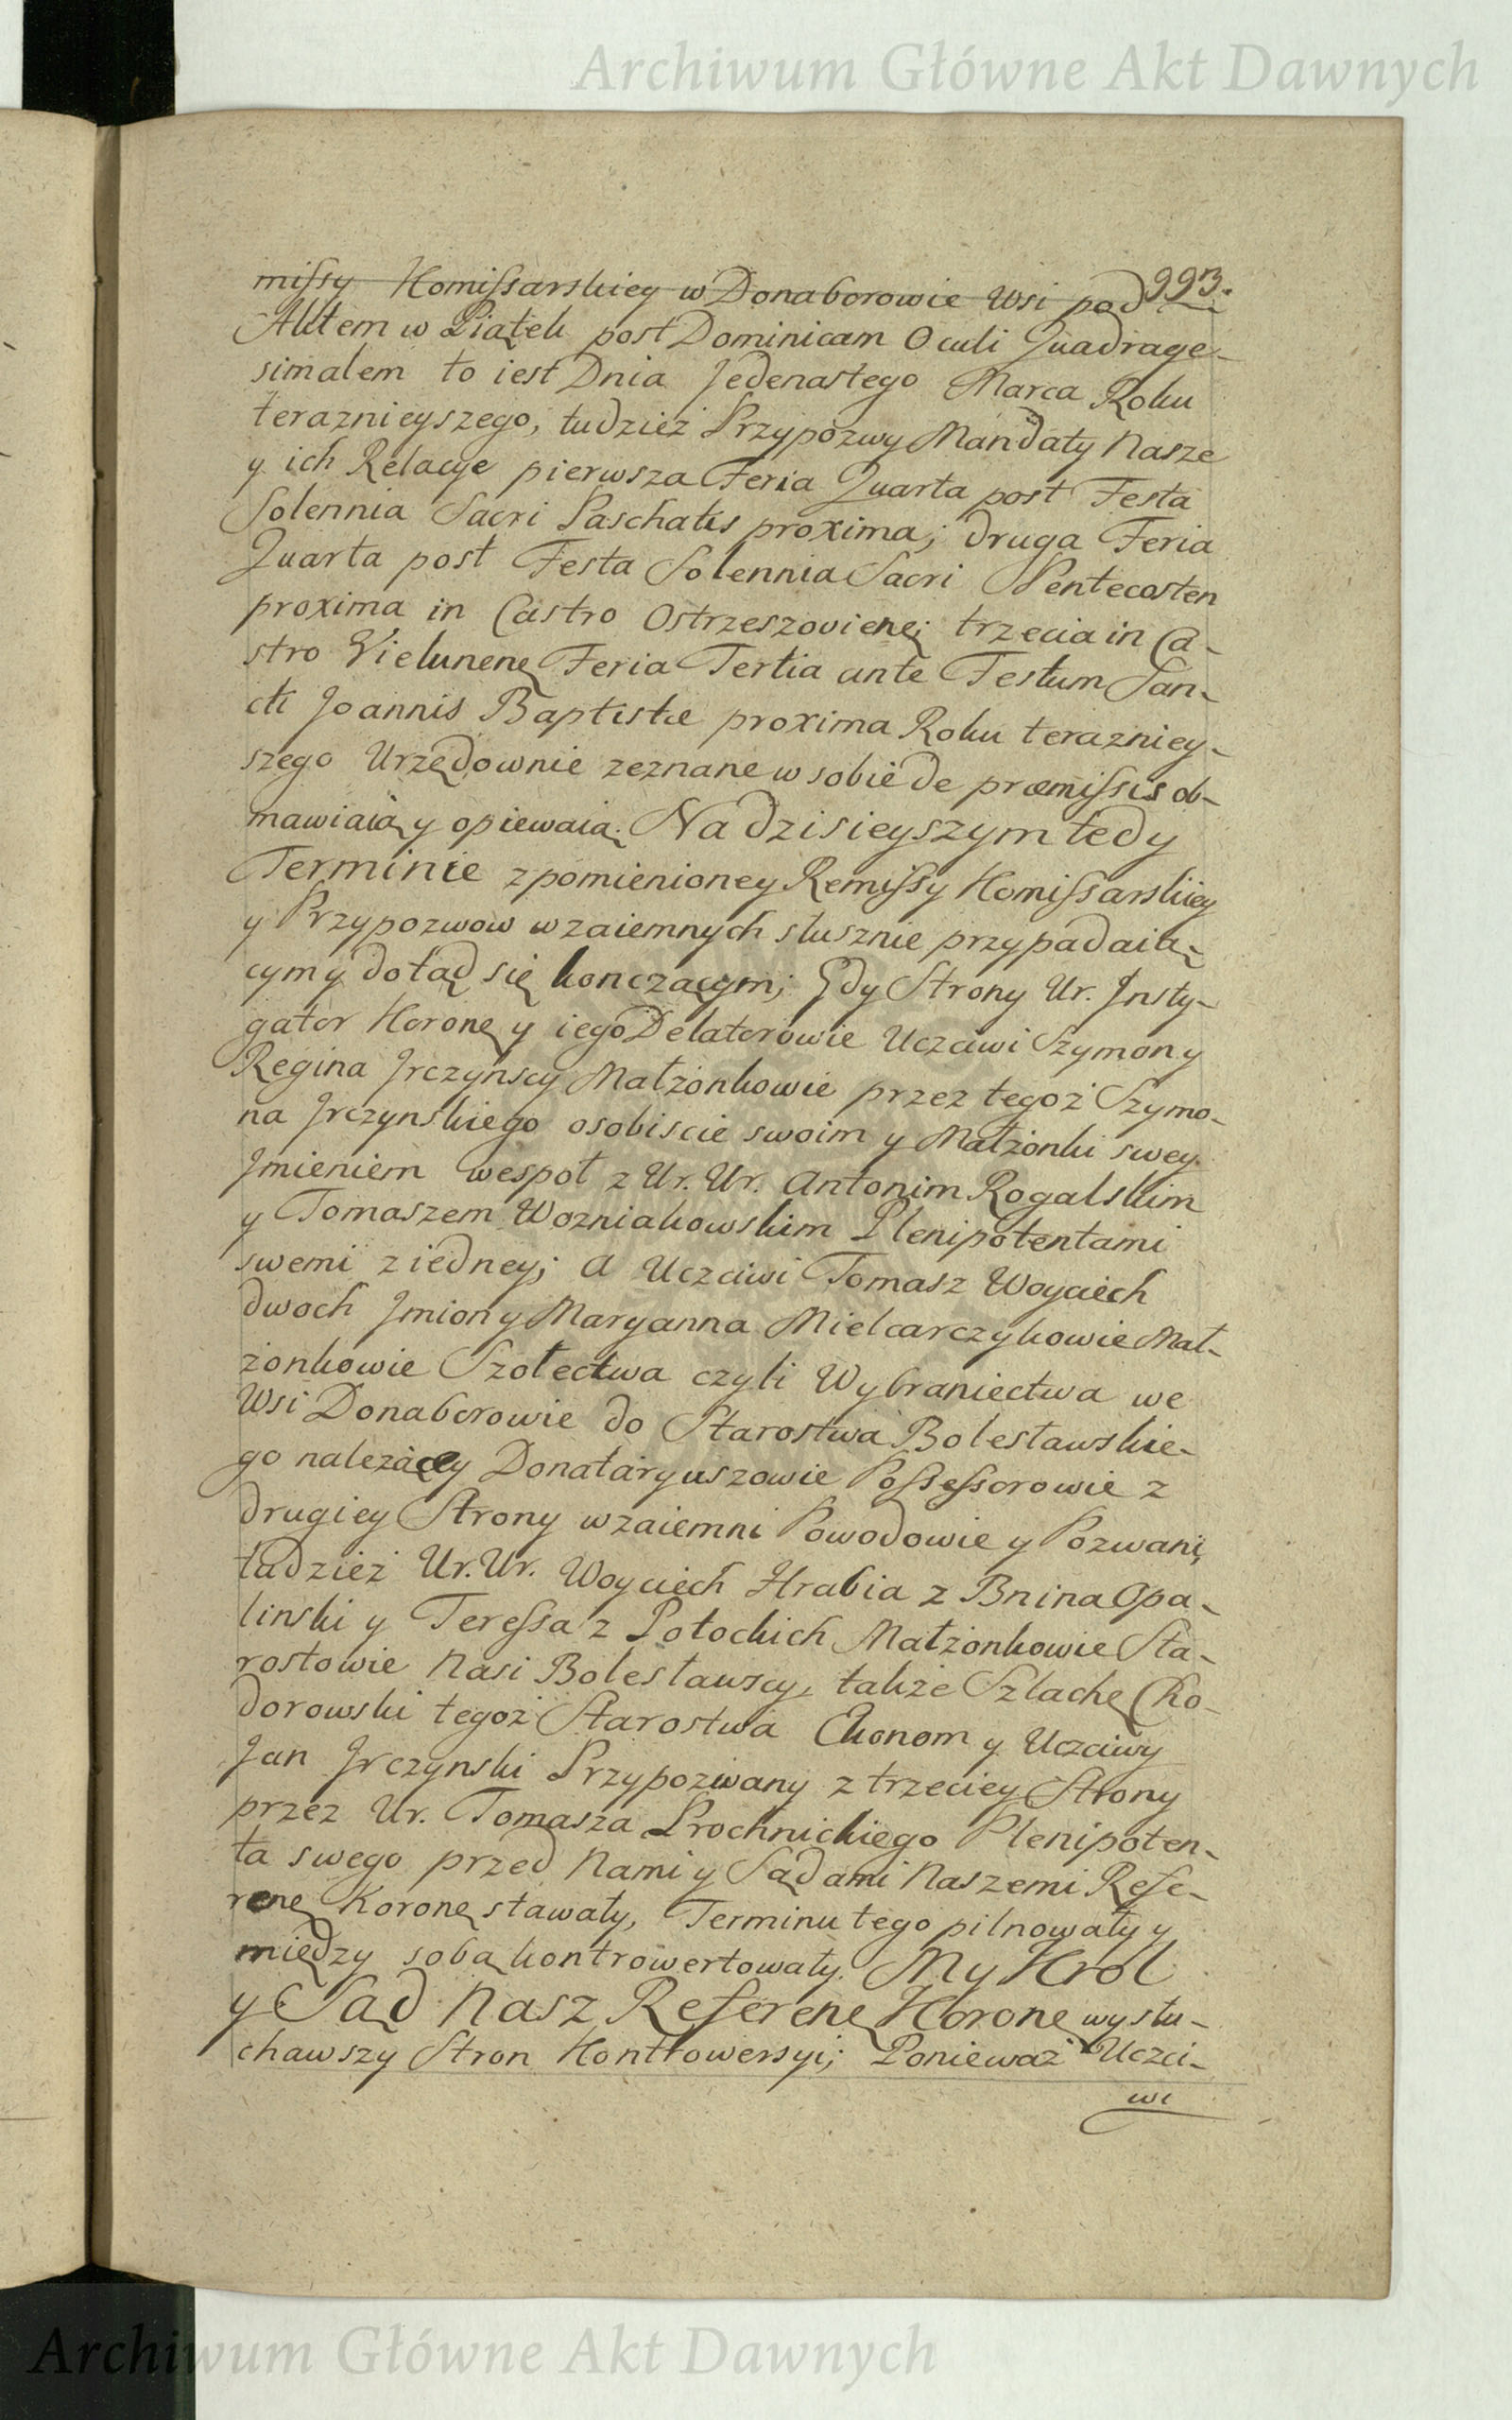 Archiwum Główne Akt Dawnych
993.
missy Komissarskiey w Donaborowie Wsi pod
Aktem w Piątek post Dominicam Oculi Quadrage-
simalem to iest Dnia Jedenastego Marca Roku
teraznieyszego, tudzież Przypozwy Mandaty Nasze
y ich Relacye pierwsza Feria Quarta post Festa
Solennia Sacri Paschatis proxima; druga Feria
Quarta post Festa Solennia Sacri Pentecosten
proxima in Castro Ostrzeszoviene; trzecia in Ca-
stro Vielunene Feria Tertia ante Festum San-
cti Joannis Baptistæ proxima Roku terazniey-
szego Urzędownie zeznane w sobie de præmissis ob-
mawiaią y opiewaią. Na dzisieyszym tedy
Terminie z pomienioney Remissy Komissarskiey
y Przypozwow wzaiemnych słusznie przypadaią-
cym y dotąd się konczącym; Gdy Strony Ur. Insty-
gator Korone y iego Delatorowie Uczciwi Szymon y
Regina Jrczynscy Małżonkowie przez tegoż Szymo-
na Jrczynskiego osobiscie swoim y Małżonki swey
Jmieniem wespoł z Ur. Ur. Antonim Rogalskim
y Tomaszem Wozniakowskim Plenipotentami
swemi z iedney; a Uczciwi Tomasz Woyciech
dwoch Jmion y Maryanna Mielcarczykowie Mał-
żonkowie Szołectwa czyli Wybraniectwa we
Wsi Donaborowie do Starostwa Bolesławskie-
go należącey Donataryuszowie Possessorowie z
drugiey Strony wzaiemni Powodowie y Pozwani,
tudzież Ur. Ur. Woyciech Hrabia z Bnina Opa-
linski y Teressa z Potockich Małżonkowie Sta-
rostowie Nasi Bolesławscy, także Szlache Cho-
dorowski tegoż Starostwa Ekonom y Uczciwy
Jan Jrczynski Przypozwany z trzeciey Strony
przez Ur. Tomasza Prochnickiego Plenipoten-
ta swego przed Nami y Sądami Naszemi Refe-
rene Korone stawały, Terminu tego pilnowały y
między sobą kontrowertowały. My Krol
y Sąd Nasz Referene Korone wysłu-
chawszy Stron Kontrowersyi; Ponieważ Uczci-
wi
Archiwum Główne Akt Dawnych